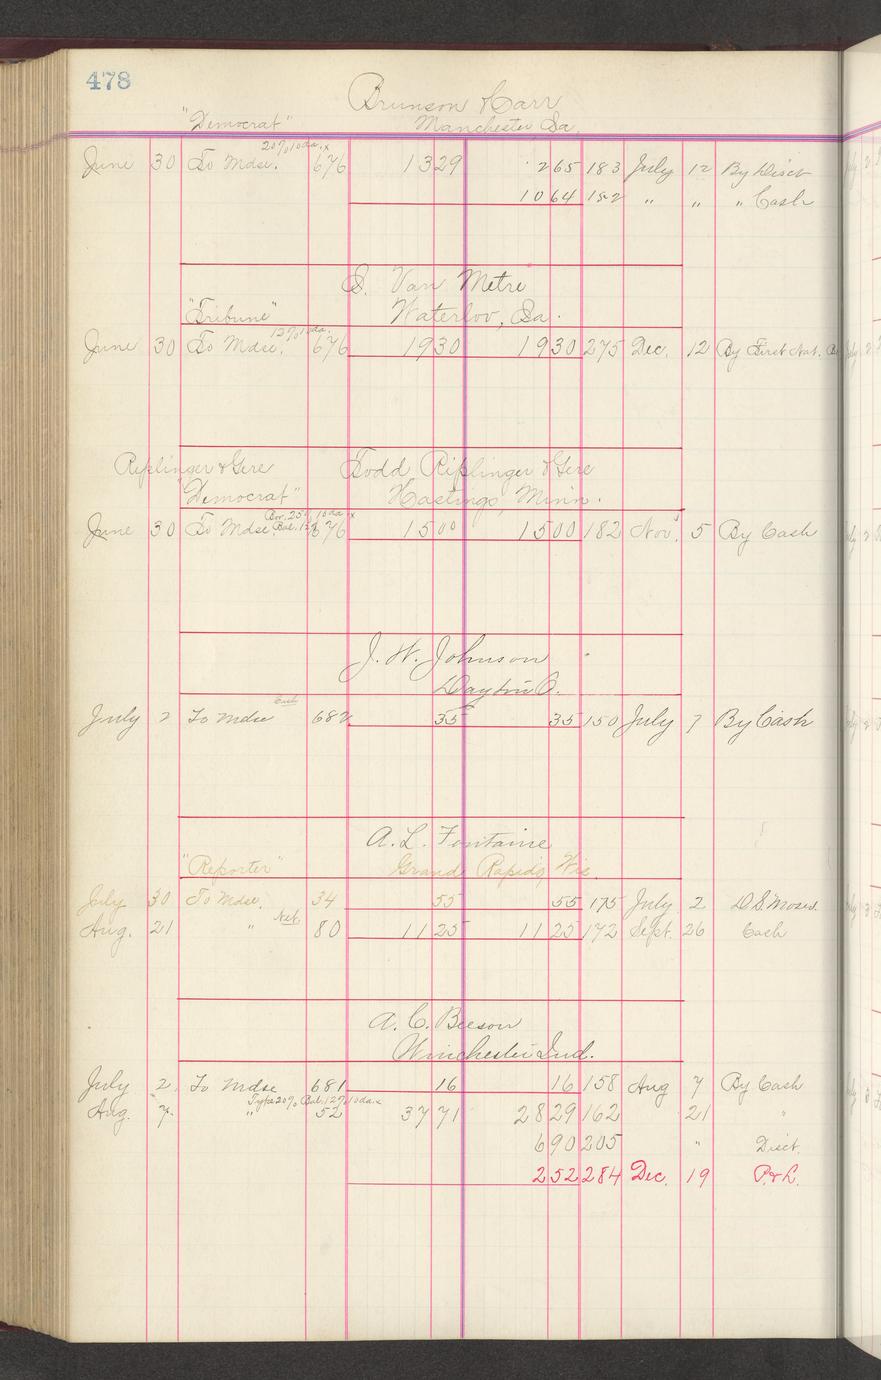 478
Brunson & Carr
"Democrat" Manchester Ia.
20% 10 da. x
June 30 To Mdse. 676 13 29 2 65 183 July 12 By Disct
10 64 182 " " " Cash
S. Van Metre
"Tribune" Waterloo, Ia.
12% 10 da.
June 30 To Mdse. 676 19 30 19 30 275 Dec. 12 By First Nat.
Riplinger & Gere Todd Riplinger & Gere
"Democrat" Hastings, Minn.
Bor. 25% 10 da. x
June 30 To Mdse. Bal. 12% 676 15 00 15 00 182 Nov. 5 By Cash
J. W. Johnson
Dayton O.
Cash
July 2 To Mdse 682 35 35 150 July 7 By Cash
A. L. Fontaine
"Reporter" Grand Rapids, Wis.
July 30 To Mdse. 34 55 55 175 July 2 D. S. Moses
Net
Aug. 21 " 80 11 25 11 25 172 Sept. 26 Cash
A. C. Beeson
Winchester Ind.
July 2 To Mdse 681 16 16 158 Aug 7 By Cash
Type 20% Bal. 12% 10 da. x
Aug. 7 " 52 37 71 28 29 162 21 "
6 90 205 " Disct.
2 52 284 Dec. 19 P. & L.